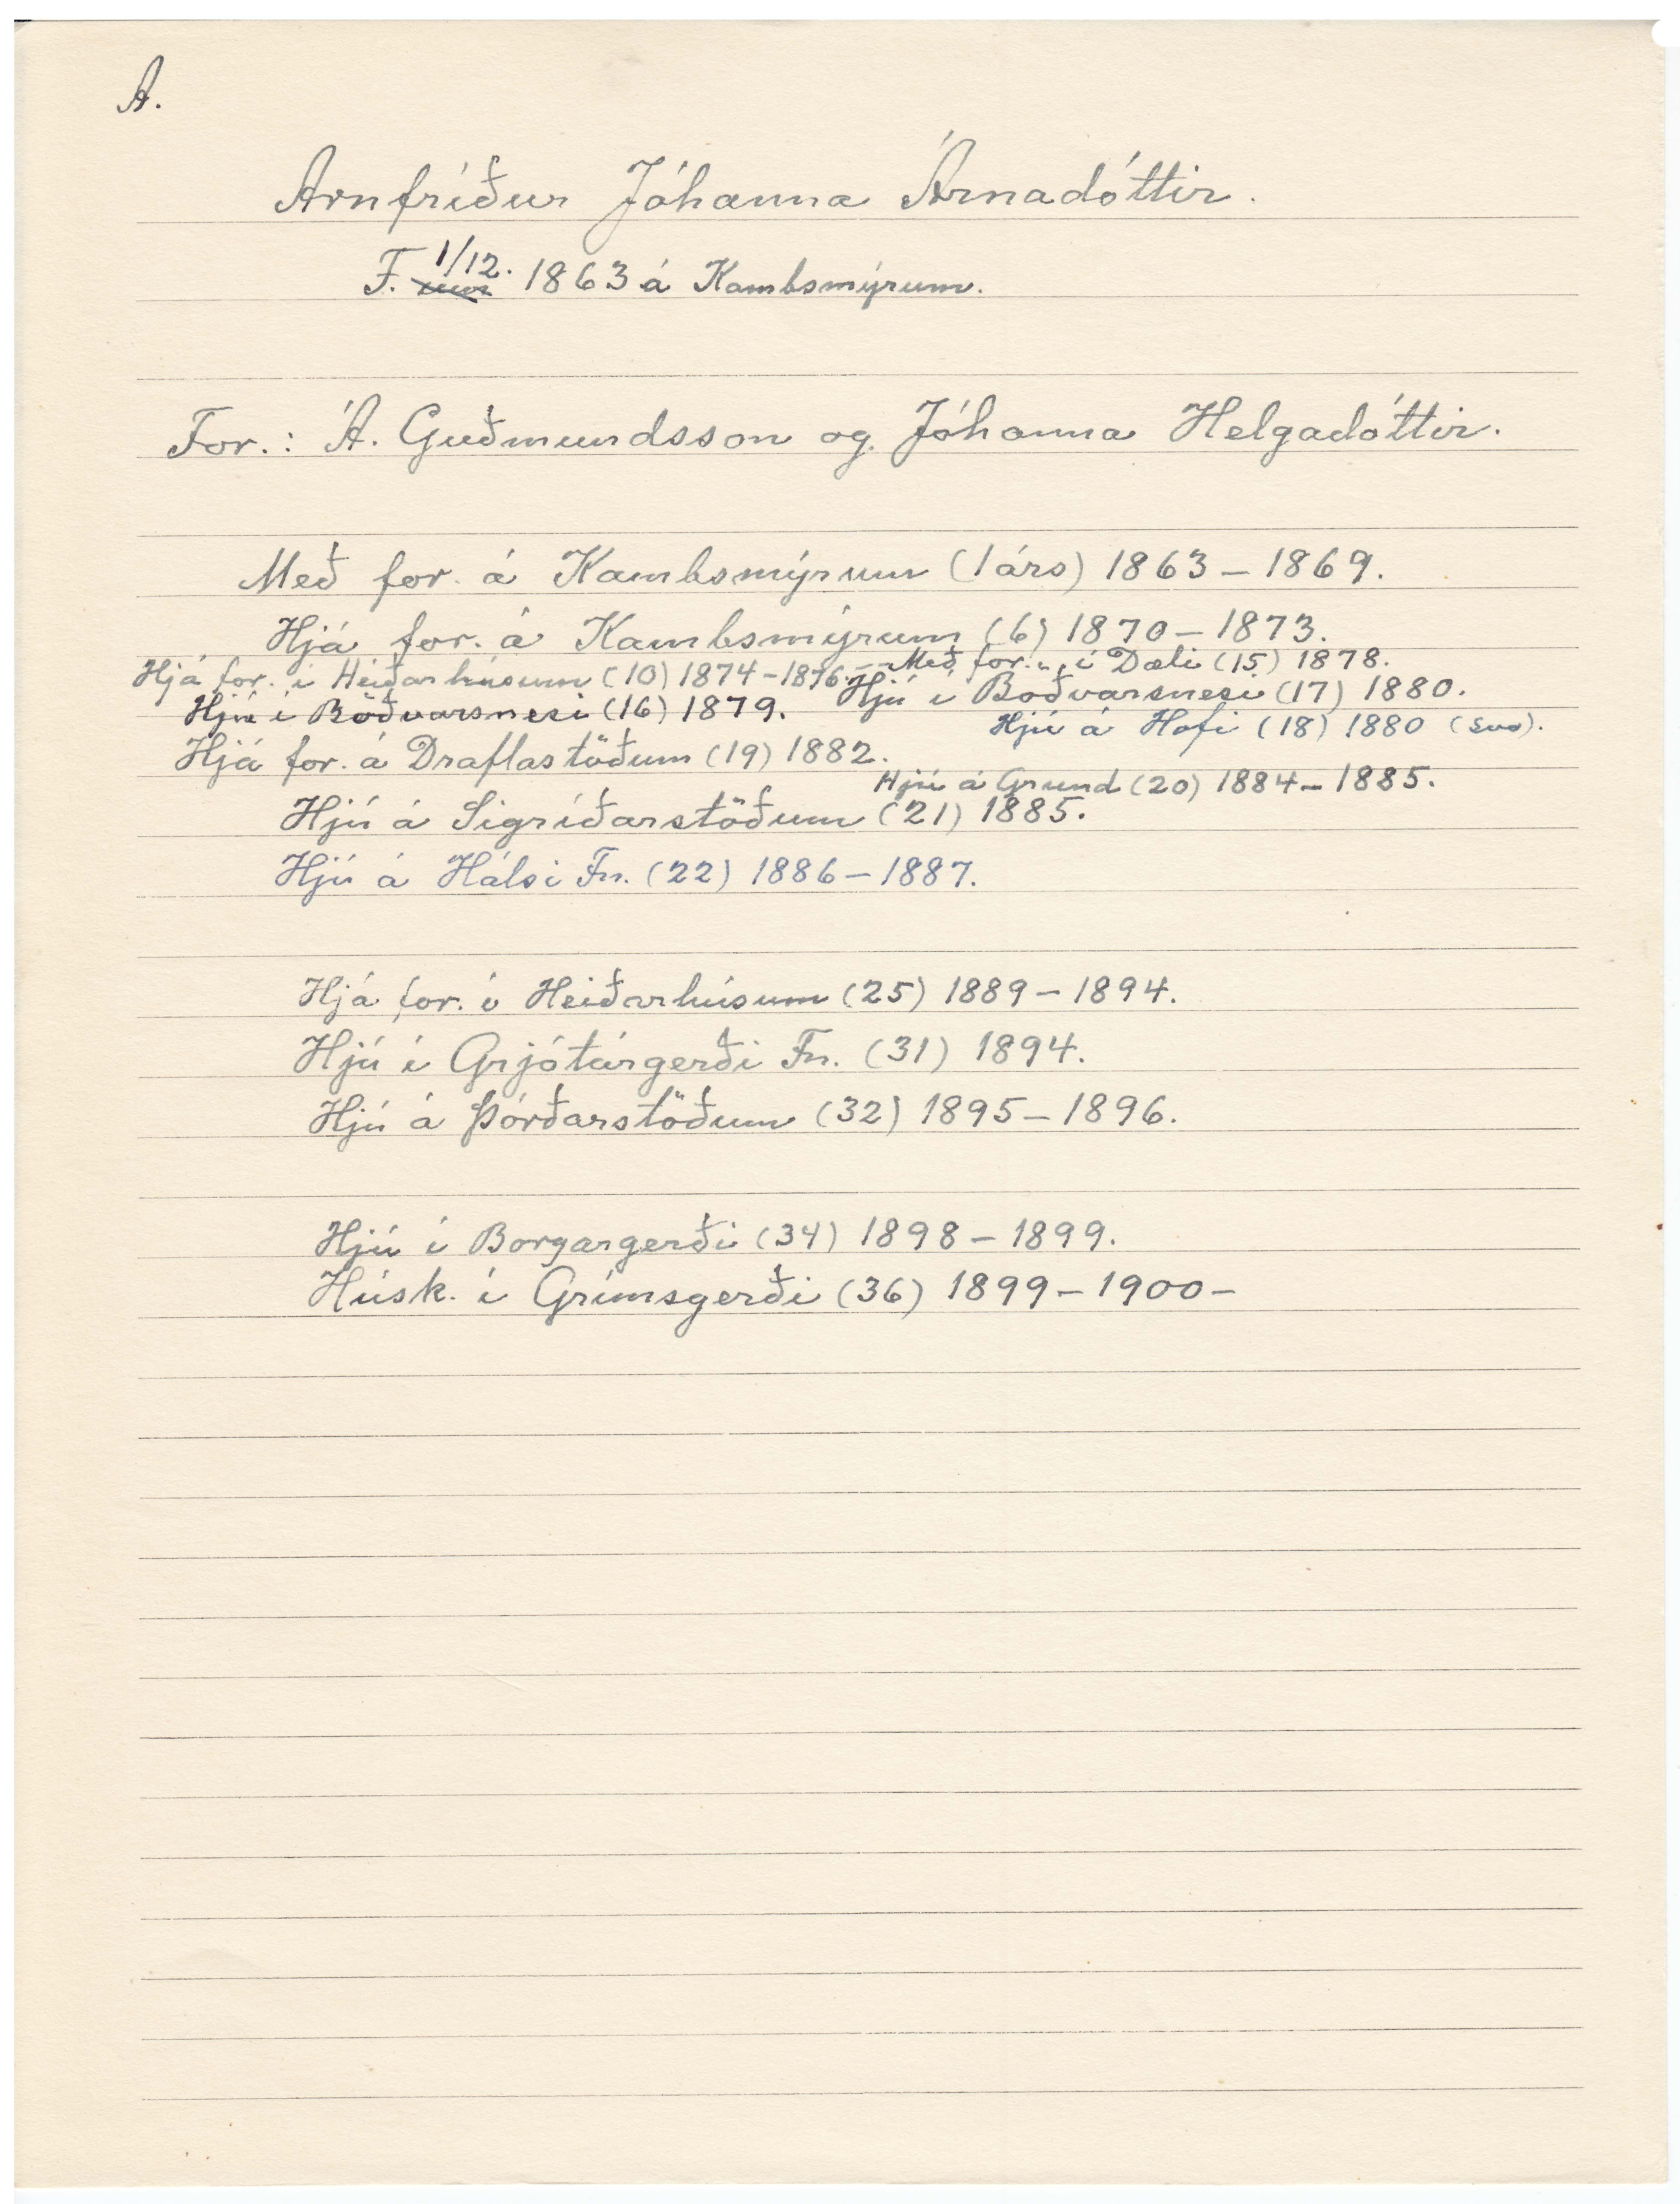 A.
Arnfríður Jóhanna Árnadóttir.
F. 1/12. 1863 á Kambsmýrum.
For.: Á. Guðmundsson og Jóhanna Helgadóttir.
Með for. á Kambsmýrum (1 árs) 1863 – 1869.
Hjá for. á Kambsmýrum (6) 1870 – 1873.
Hjá for. í Heiðarhúsum (10) 1874 – 1876. – Með for. „ í Dæli (15) 1878.
Hjú í Böðvarsnesi (16) 1879. Hjú í Böðvarsnesi (17) 1880.
Hjú á Hofi (18) 1880 (svo).
Hjá for. á Draflastöðum (19) 1882.
Hjú á Grund (20) 1884 – 1885.
Hjú á Sigríðarstöðum (21) 1885.
Hjú á Hálsi Fn. (22) 1886 – 1887.
Hjá for. í Heiðarhúsum (25) 1889 – 1894.
Hjú í Grjótárgerði Fn. (31) 1894.
Hjú á Þórðarstöðum (32) 1895 – 1896.
Hjú í Borgargerði (34) 1898 – 1899.
Húsk. í Grímsgerði (36) 1899 – 1900 –